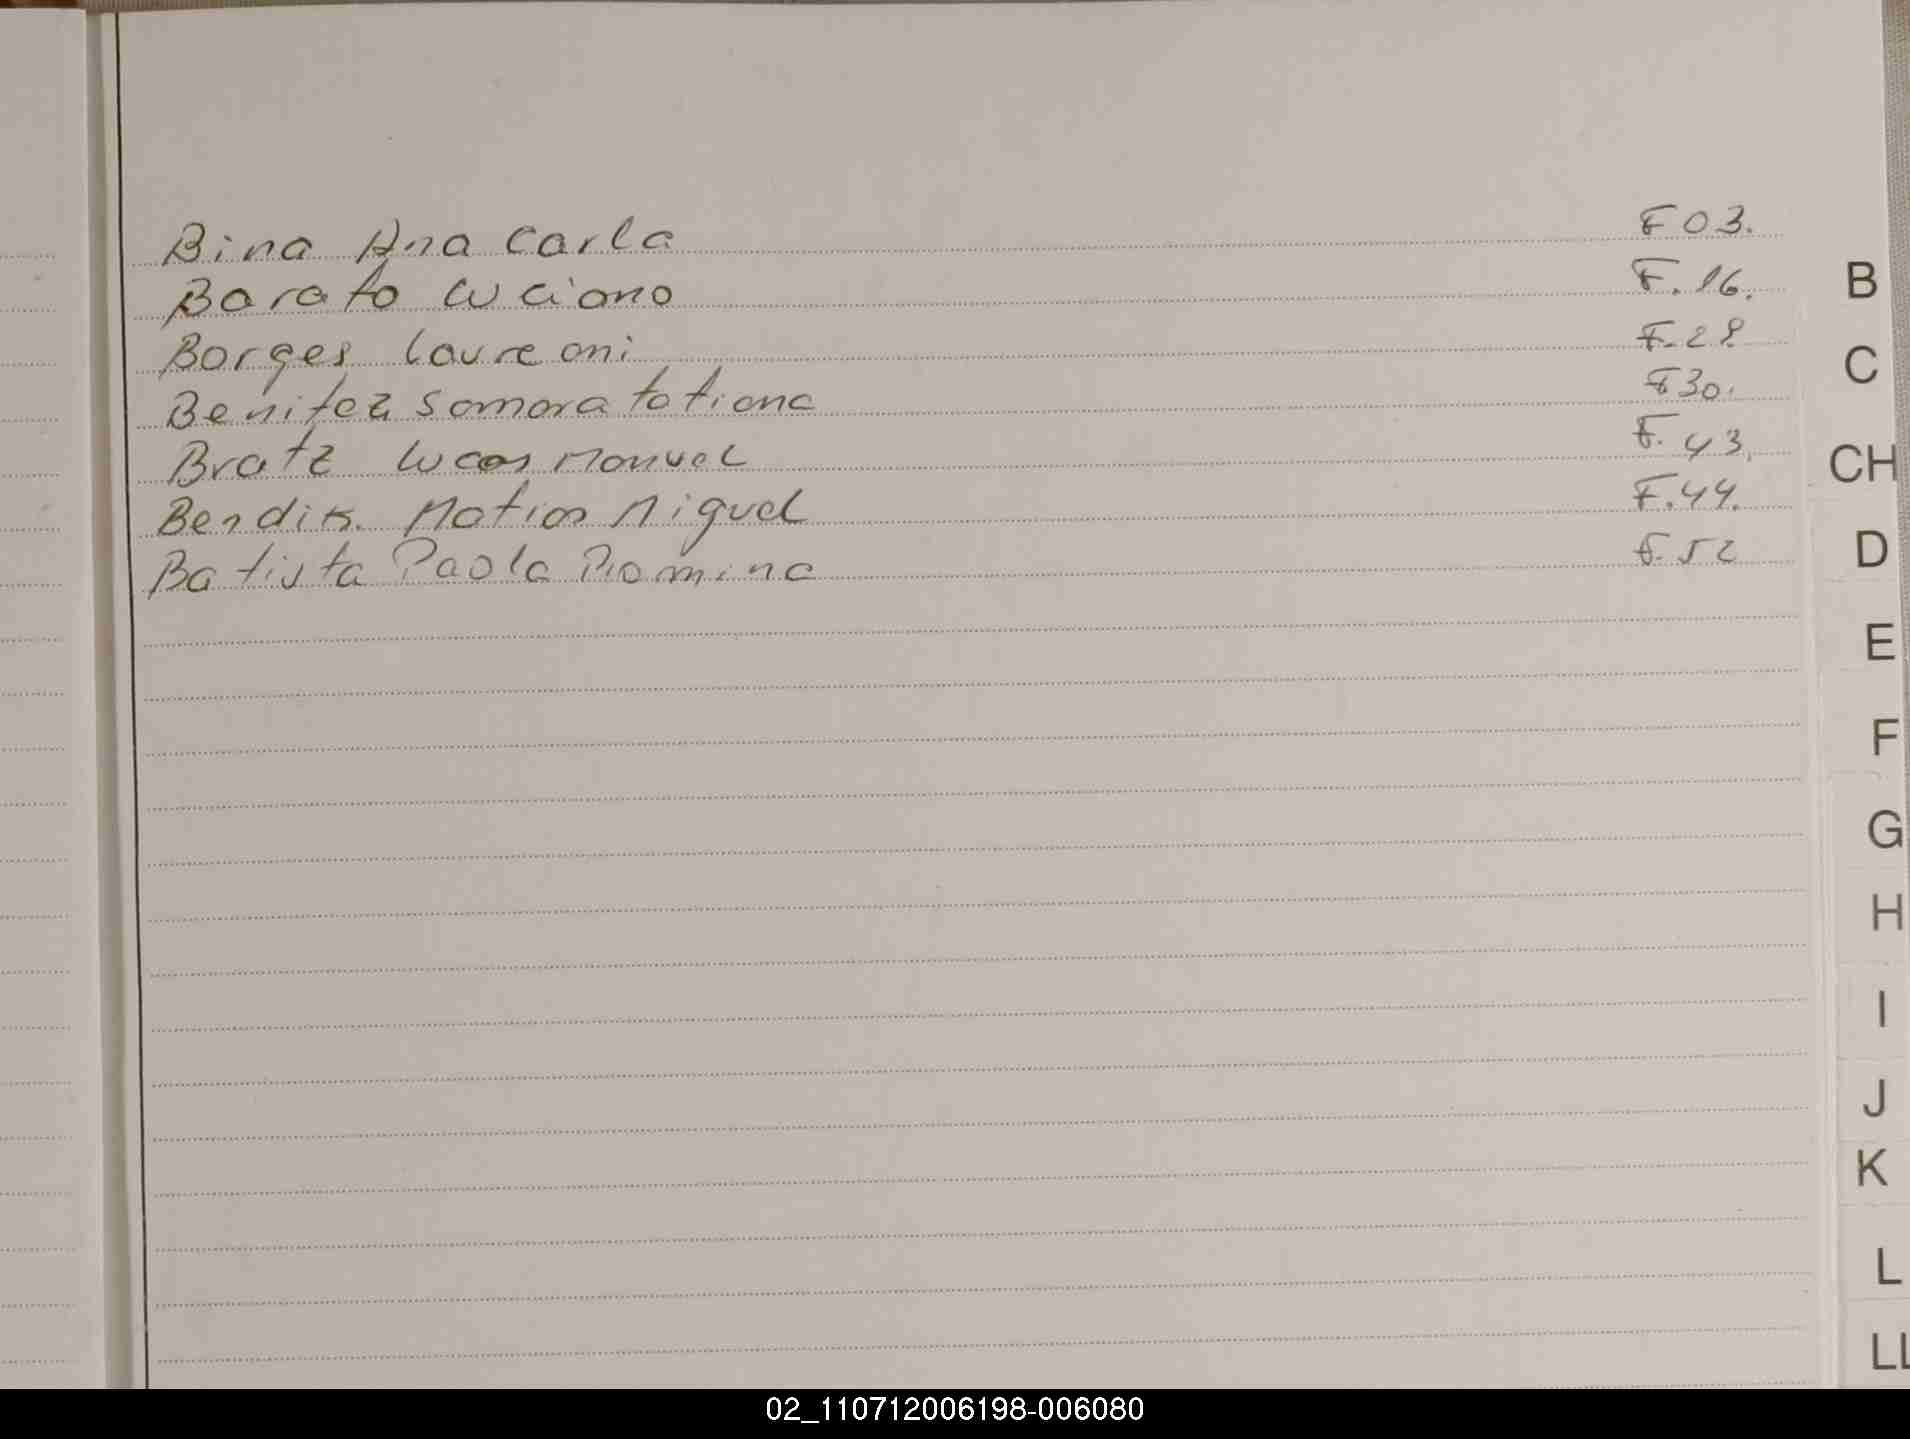 Bina Ana Carla F 03.
Barato Luciano F. 16.
Borges Laureani F. 28
Benitez Samara Tatiana F 30.
Bratz Lucas Manuel F. 43.
Bendik Matias Miguel F. 44.
Batista Paola Romina F. 52
B
C
CH
D
E
F
G
H
I
J
K
L
LL
02_110712006198-006080